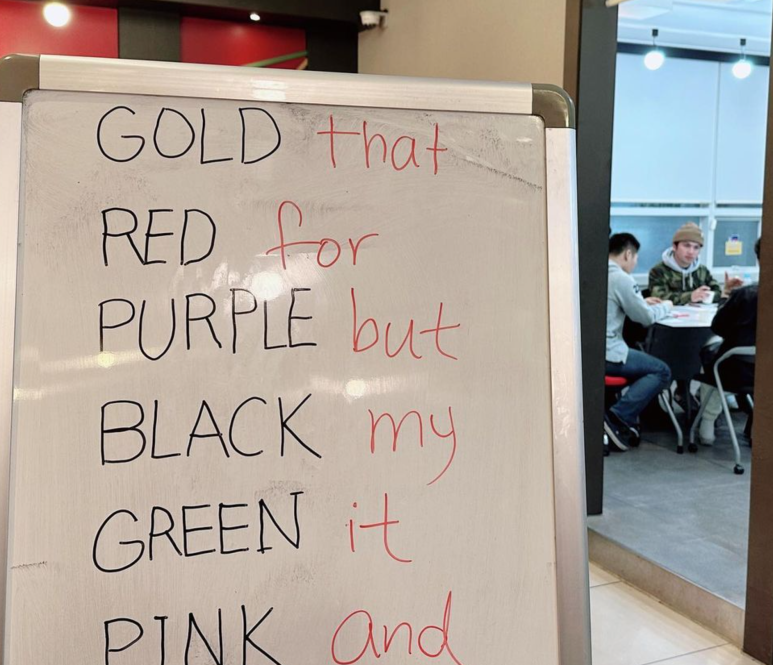 GOLD that
RED for
PURPLE but
BLACK my
GREEN it
PINK and